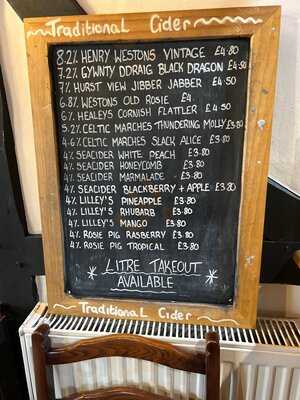 Traditional Cider
8.2% HENRY WESTONS VINTAGE £4.80
7.2% GYWNTY DDRAIG BLACK DRAGON £4.50
7% HURST VIEW JIBBER JABBER £4.50
6.8% WESTONS OLD ROSIE £4
6% HEALEYS CORNISH FLATTLER £4.50
5.2% CELTIC MARCHES THUNDERING MOLLY £3.80
4.6% CELTIC MARCHES SLACK ALICE £3.80
4% SEACIDER WHITE PEACH £3.80
4% SEACIDER HONEYCOMB £3.80
4% SEACIDER MARMALADE £3.80
4% SEACIDER BLACKBERRY + APPLE £3.80
4% LILLEY'S PINEAPPLE £3.80
4% LILLEY'S RHUBARB £3.80
4% LILLEY'S MANGO £3.80
4% ROSIE PIG RASBERRY £3.80
4% ROSIE PIG TROPICAL £3.80
* LITRE TAKEOUT *
AVAILABLE
Traditional Cider